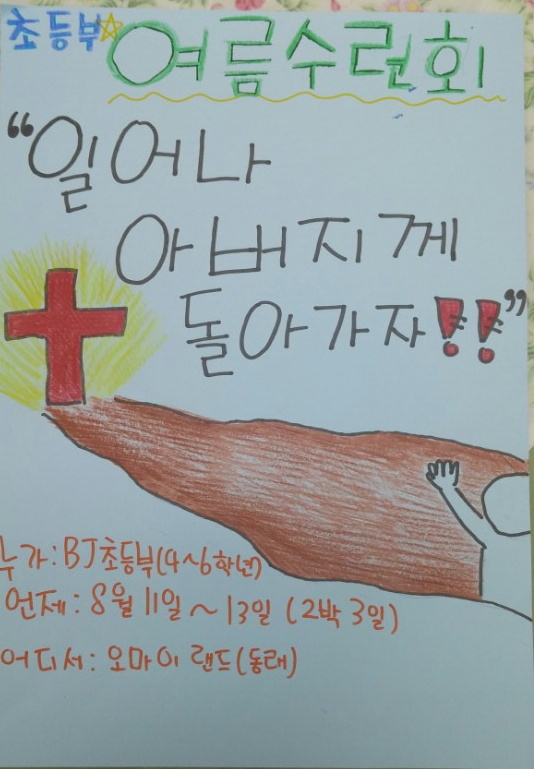 초등부☆ 여름수련회
“일어나
아버지께
돌아가자!!”
누가: BJ초등부(4~6학년)
언제: 8월 11일 ~ 13일 (2박 3일)
어디서: 오마이 랜드(동래)